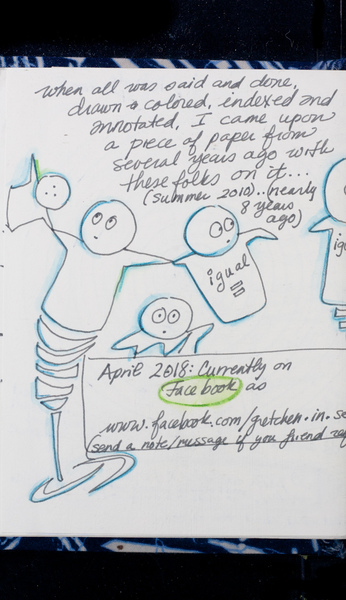 when all was said and done,
drawn & colored, indexed and
annotated, I came upon
a piece of paper from
several years ago with
these folks on it...
(summer 2010)..(nearly
8 years
ago)
igual
=
igu
April 2018: Currently on
Facebook as
www.facebook.com/gretchen.in.se
send a note/message if you friend req